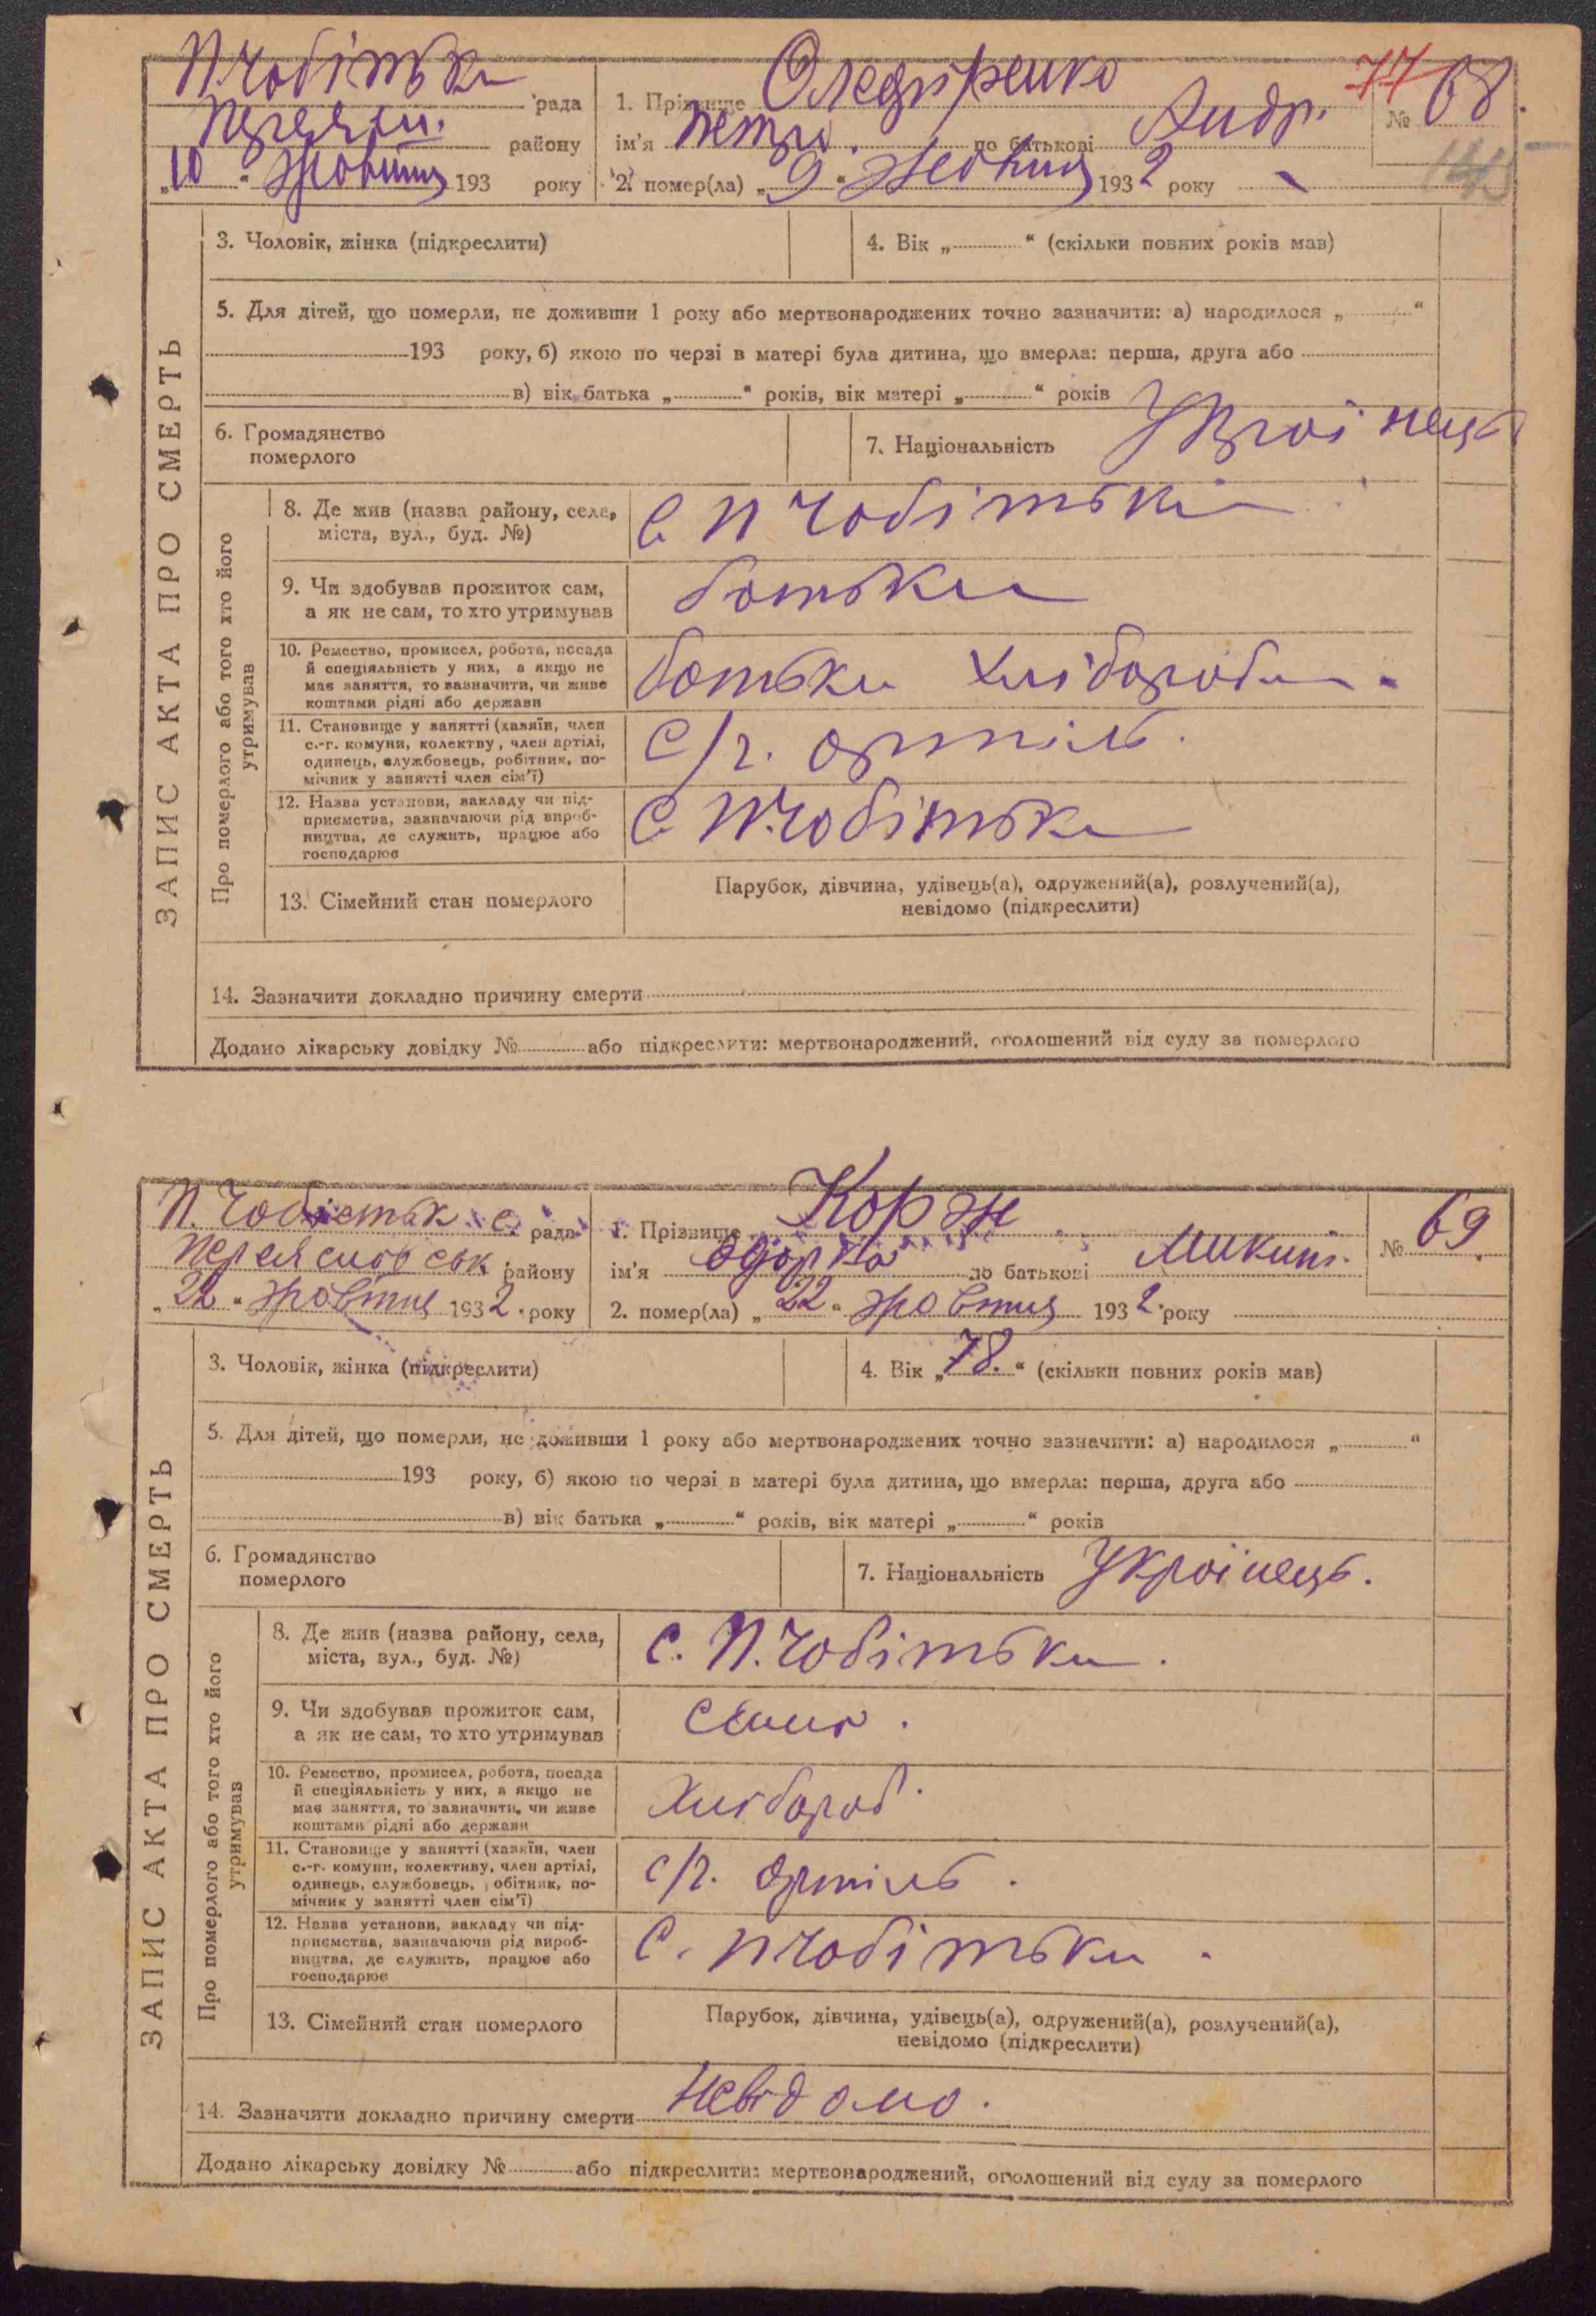 П.Чобітьки рада
Переясл. району
„10“ жовтня 193 року
1. Прізвище Оледіренко
ім'я Петро. по батькові Андр.
№ 68.
77
2. помер(ла) „9“ жовтня 1932 року
3. Чоловік, жінка (підкреслити)
4. Вік „ “ (скільки повних років мав)
5. Для дітей, що померли, не доживши 1 року або мертвонароджених точно зазначити: а) народилося „ “
193 року, б) якою по черзі в матері була дитина, що вмерла: перша, друга або
в) вік батька „ “ років, вік матері „ “ років
6. Громадянство
померлого
7. Національність Українець
ЗАПИС АКТА ПРО СМЕРТЬ
Про померлого або того хто його
утримував
8. Де жив (назва району, села,
міста, вул., буд. №)
с. П Чобітьки
9. Чи здобував прожиток сам,
а як не сам, то хто утримував
батьки
10. Ремество, промисел, робота, посада
й спеціяльність у них, а якщо не
має заняття, то зазначити, чи живе
коштами рідні або держави
батьки хлібороби
11. Становище у занятті (хазяїн, член
с.-г. комуни, колектву, член артілі,
одинець, службовець, робітник, по-
мічник у занятті член сім'ї)
с/г. артіль.
12. Назва установи, закладу чи під-
приємства, зазначаючи рід вироб-
ництва, де служить, працює або
господарює
с. П.Чобітьки
13. Сімейний стан померлого
Парубок, дівчина, удівець(а), одружений(а), розлучений(а),
невідомо (підкреслити)
14. Зазначити докладно причину смерти
Додано лікарську довідку № або підкреслити: мертвонароджений, оголошений від суду за померлого
П. Чобітьк. с. рада
Переяславськ району
„22“ жовтня 1932. року
1. Прізвище Корж
ім'я Одарка по батькові Микит.
№ 69.
2. помер(ла) „22“ жовтня 1932 року
3. Чоловік, жінка (підкреслити)
4. Вік „78.“ (скільки повних років мав)
5. Для дітей, що померли, не доживши 1 року або мертвонароджених точно зазначити: а) народилося „ “
193 року, б) якою по черзі в матері була дитина, що вмерла: перша, друга або
в) вік батька „ “ років, вік матері „ “ років
6. Громадянство
померлого
7. Національність Українець.
ЗАПИС АКТА ПРО СМЕРТЬ
Про померлого або того хто його
утримував
8. Де жив (назва району, села,
міста, вул., буд. №)
с. П.Чобітьки.
9. Чи здобував прожиток сам,
а як не сам, то хто утримував
10. Ремество, промисел, робота, посада
й спеціяльність у них, а якщо не
має заняття, то зазначити, чи живе
коштами рідні або держави
хлібороб.
11. Становище у занятті (хазяїн, член
с.-г. комуни, колективу, член артілі,
одинець, службовець, робітник, по-
мічник у занятті член сім'ї)
с/г. артіль.
12. Назва установи, закладу чи під-
приємства, зазначаючи рід вироб-
ництва, де служить, працює або
господарює
с. П Чобітьки.
13. Сімейний стан померлого
Парубок, дівчина, удівець(а), одружений(а), розлучений(а),
невідомо (підкреслити)
14. Зазначити докладно причину смерти невідомо.
Додано лікарську довідку № або підкреслити: мертвонароджений, оголошений від суду за померлого